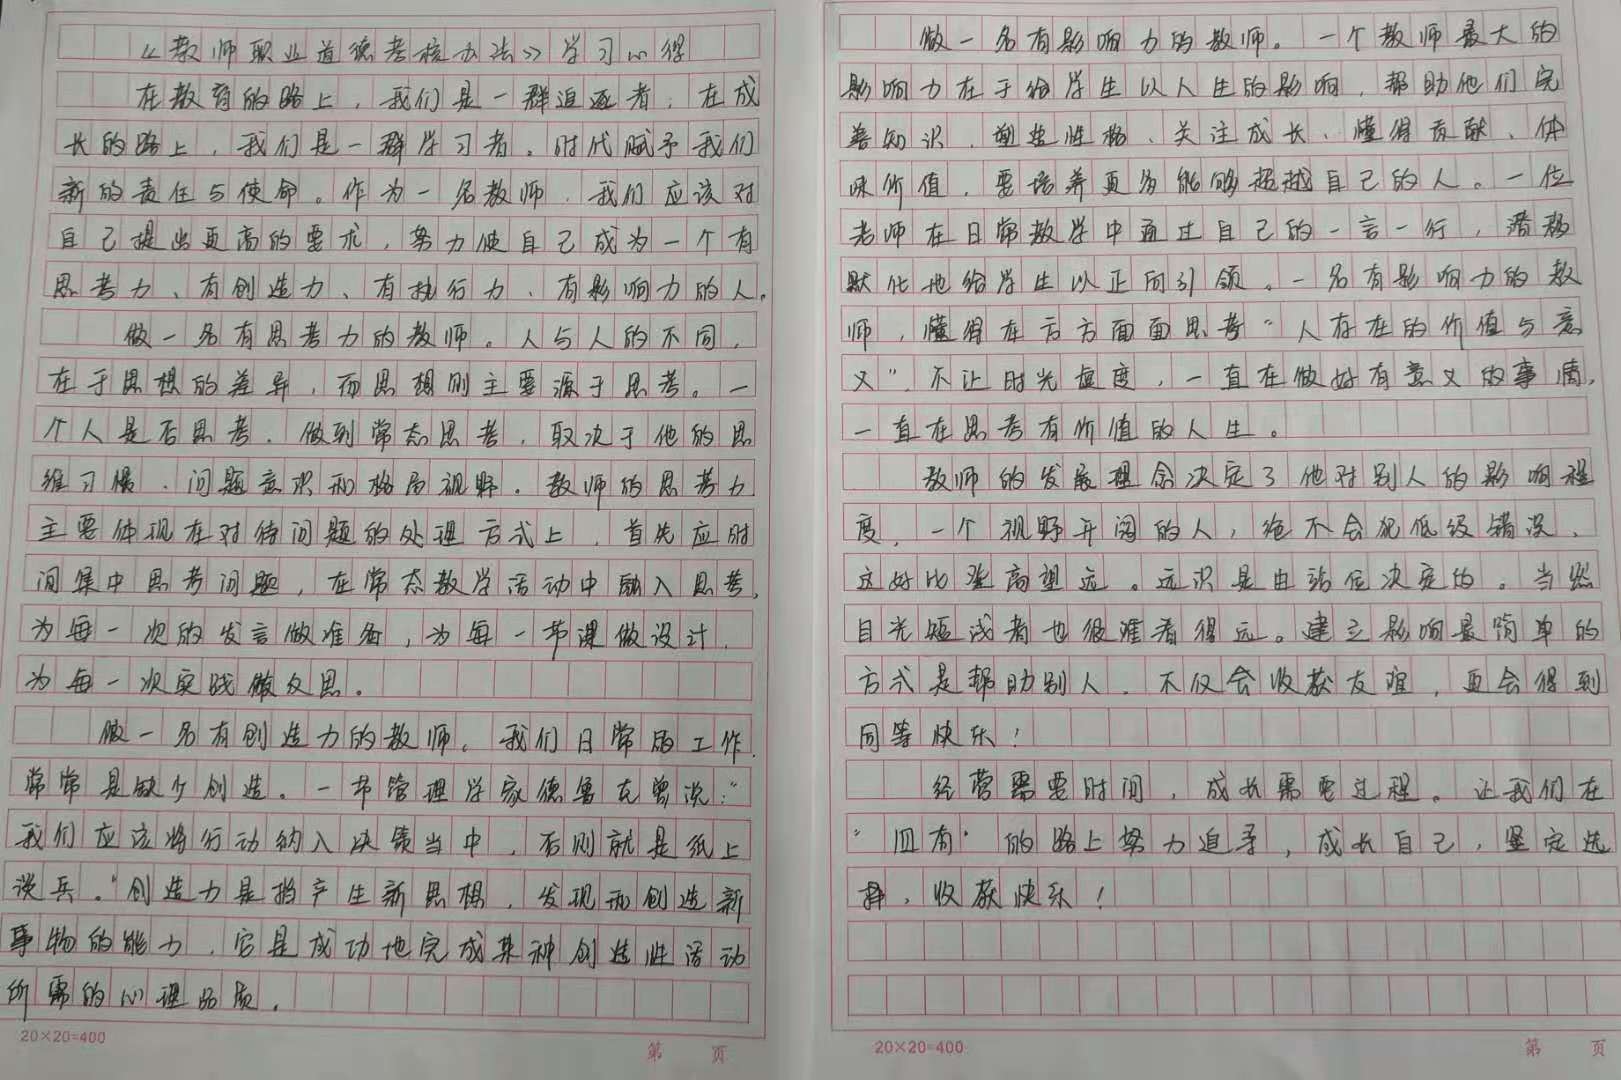 《教师职业道德考核办法》学习心得
在教育的路上，我们是一群追逐者，在成
长的路上，我们是一群学习者。时代赋予我们
新的责任与使命。作为一名教师，我们应该对
自己提出更高的要求，努力使自己成为一个有
思考力、有创造力、有执行力、有影响力的人。
做一名有思考力的教师。人与人的不同，
在于思想的差异，而思想则主要源于思考。一
个人是否思考，做到常态思考，取决于他的思
维习惯、问题意识和格局视野。教师的思考力
主要体现在对待问题的处理方式上，首先应时
间集中思考问题，在常态教学活动中融入思考，
为每一次的发言做准备，为每一节课做设计，
为每一次实践做反思。
做一名有创造力的教师。我们日常的工作，
常常是缺少创造。一书管理学家德鲁克曾说："
我们应该将行动纳入决策当中，否则就是纸上
谈兵。"创造力是指产生新思想，发现和创造新
事物的能力，它是成功地完成某种创造性活动
所需的心理品质。
20×20=400
第 页
做一名有影响力的教师。一个教师最大的
影响力在于给学生以人生的影响，帮助他们完
善知识、塑造性格、关注成长、懂得贡献、体
味价值，要培养更多能够超越自己的人。一位
老师在日常教学中通过自己的一言一行，潜移
默化地给学生以正向引领。一名有影响力的教
师，懂得在方方面面思考"人存在的价值与意
义"不让时光虚度，一直在做好有意义的事情，
一直在思考有价值的人生。
教师的发展理念决定了他对别人的影响程
度，一个视野开阔的人，绝不会犯低级错误，
这好比登高望远。远识是由站位决定的。当然
目光短浅者也很难看得远。建立影响最简单的
方式是帮助别人，不仅会收获友谊，更会得到
同等快乐！
经营需要时间，成长需要过程。让我们在
"四有"的路上努力追寻，成长自己，坚定选
择，收获快乐！
20×20=400
第 页